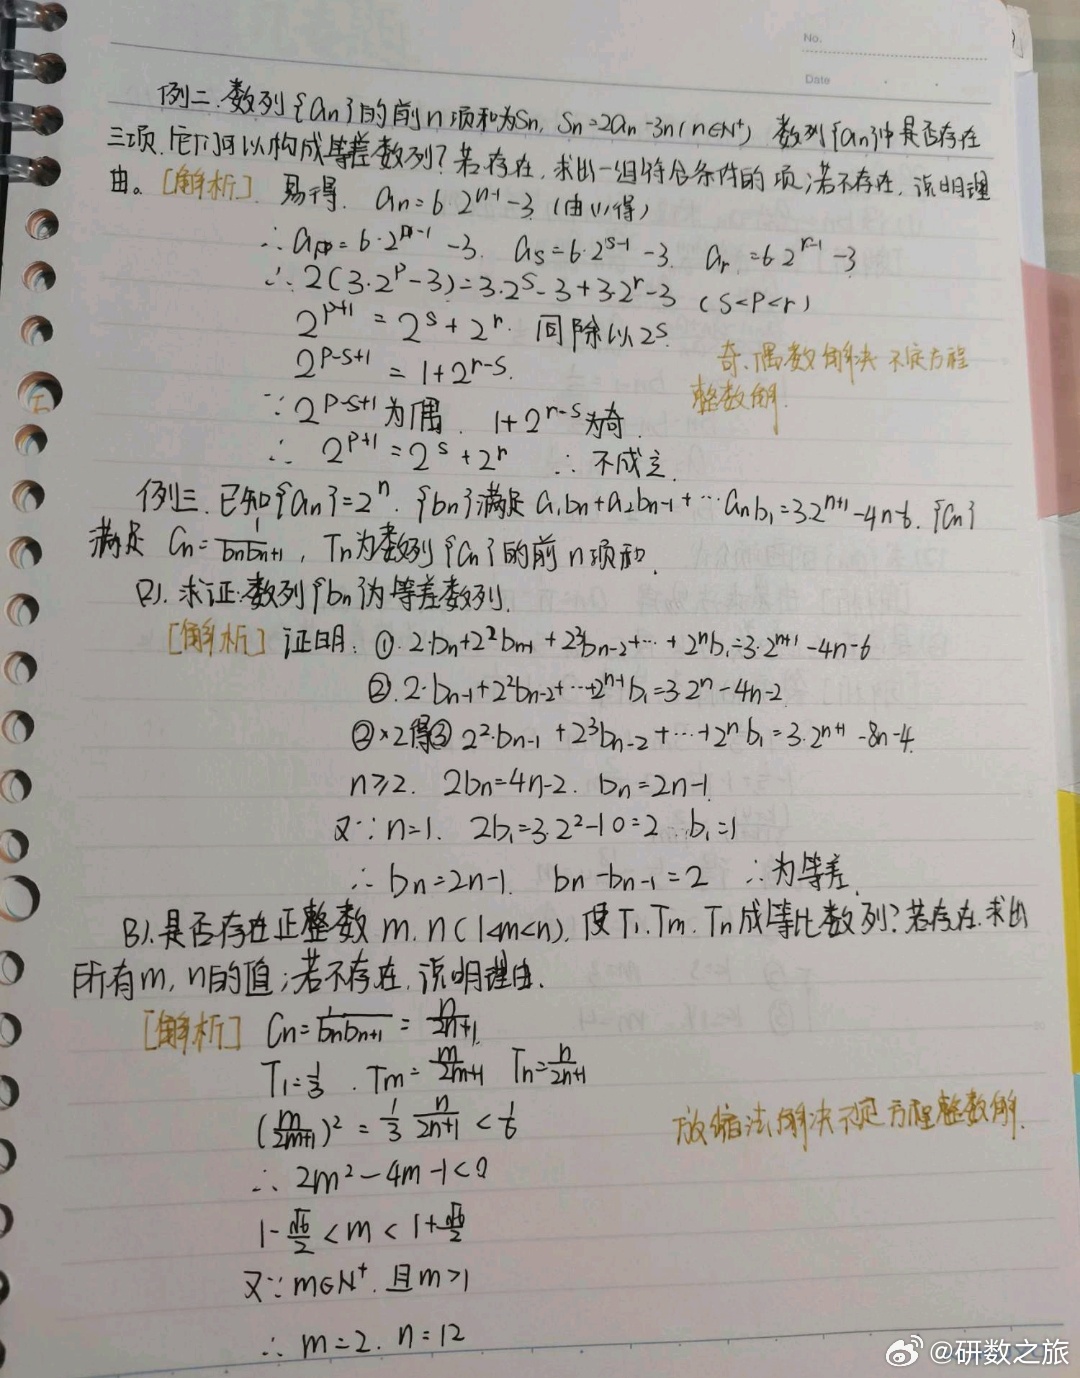 No.
Date
例二.数列{an}的前n项和为Sn, Sn=2an-3n(n∈N⁺) 数列{an}中是否存在
三项.它们可以构成等差数列?若存在,求出一组符合条件的项;若不存在,说明理
由。[解析] 易得. an=6·2ⁿ⁻¹-3 (由(1)得)
∴ap=6·2ᵖ⁻¹-3. as=6·2ˢ⁻¹-3. ar=6·2ʳ⁻¹-3
∴2(3·2ᵖ-3)=3·2ˢ-3+3·2ʳ-3 (s<p<r)
2ᵖ⁺¹=2ˢ+2ʳ. 同除以2ˢ.
2ᵖ⁻ˢ⁺¹=1+2ʳ⁻ˢ.
奇、偶数解决不定方程
整数解.
∵2ᵖ⁻ˢ⁺¹为偶. 1+2ʳ⁻ˢ为奇.
∴2ᵖ⁺¹=2ˢ+2ʳ ∴不成立.
例三.已知{an}=2ⁿ. {bn}满足a₁bn+a₂bn-1+…anb₁=3·2ⁿ⁺¹-4n-6. {Cn}
满足 Cn=1/(bnbn+1), Tn为数列{Cn}的前n项和.
(2).求证:数列{bn}为等差数列.
[解析] 证明: ①.2·bn+2²bn-1+2³bn-2+…+2ⁿb₁=3·2ⁿ⁺¹-4n-6
②.2·bn-1+2²bn-2+…+2ⁿ⁻¹b₁=3·2ⁿ-4n-2
②×2得③ 2²·bn-1+2³bn-2+…+2ⁿb₁=3·2ⁿ⁺¹-8n-4.
n≥2. 2bn=4n-2. bn=2n-1.
又∵n=1. 2b₁=3·2²-10=2 ∴b₁=1
∴bn=2n-1. bn-bn-1=2 ∴为等差.
(3).是否存在正整数m,n(1<m<n),使T₁.Tm.Tn成等比数列?若存在.求出
所有m,n的值;若不存在,说明理由.
[解析] Cn=1/(bnbn+1)=n/(2n+1).
T₁=1/3. Tm=m/(2m+1) Tn=n/(2n+1)
(m/(2m+1))²=1/3 n/(2n+1)<1/6
放缩法解决不定方程整数解.
∴2m²-4m-1<0
1-√6/2<m<1+√6/2
又∵m∈N⁺.且m>1
∴m=2. n=12
@研数之旅